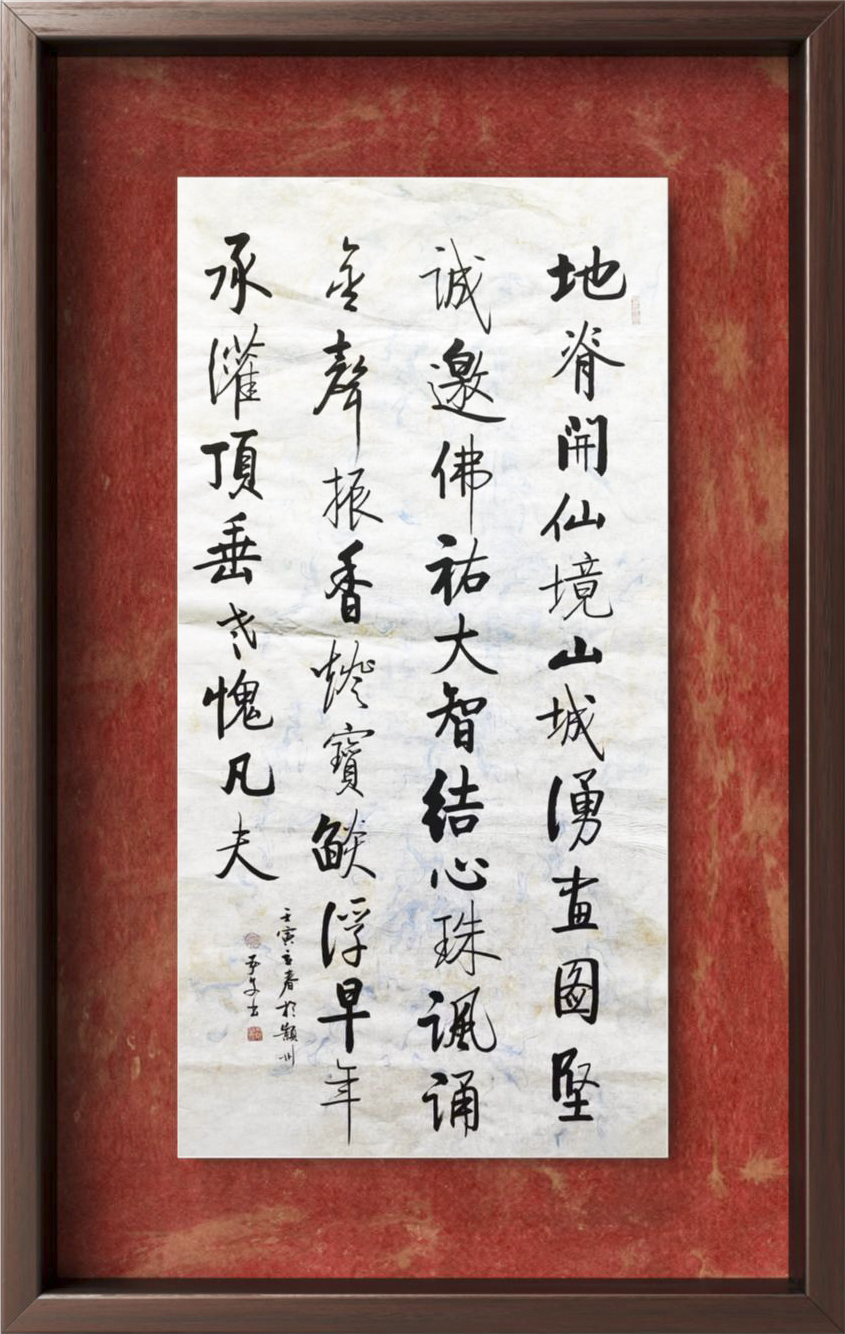 地脊開仙境山城湧畫圖堅
誠邀佛祐大智結心珠諷誦
金聲振香燈寶燄浮早年
承灌頂垂老愧凡夫
壬寅立春於潁州